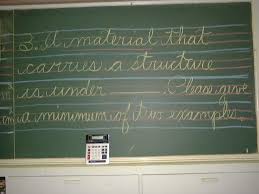 3. A material that
carries a structure
is under ______. Please give
a minimum of two examples.